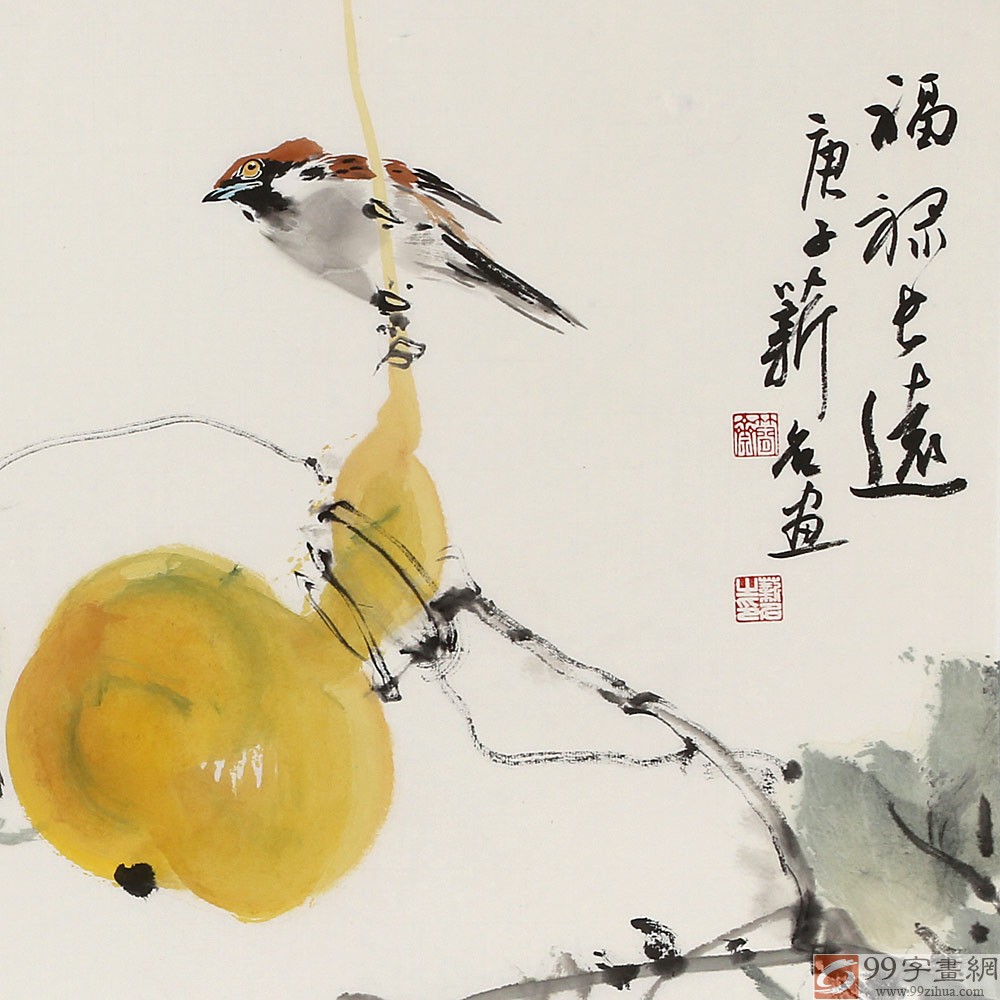 福禄长远
庚子薪名画
薪名
之印
99字畫網
www.99zihua.com